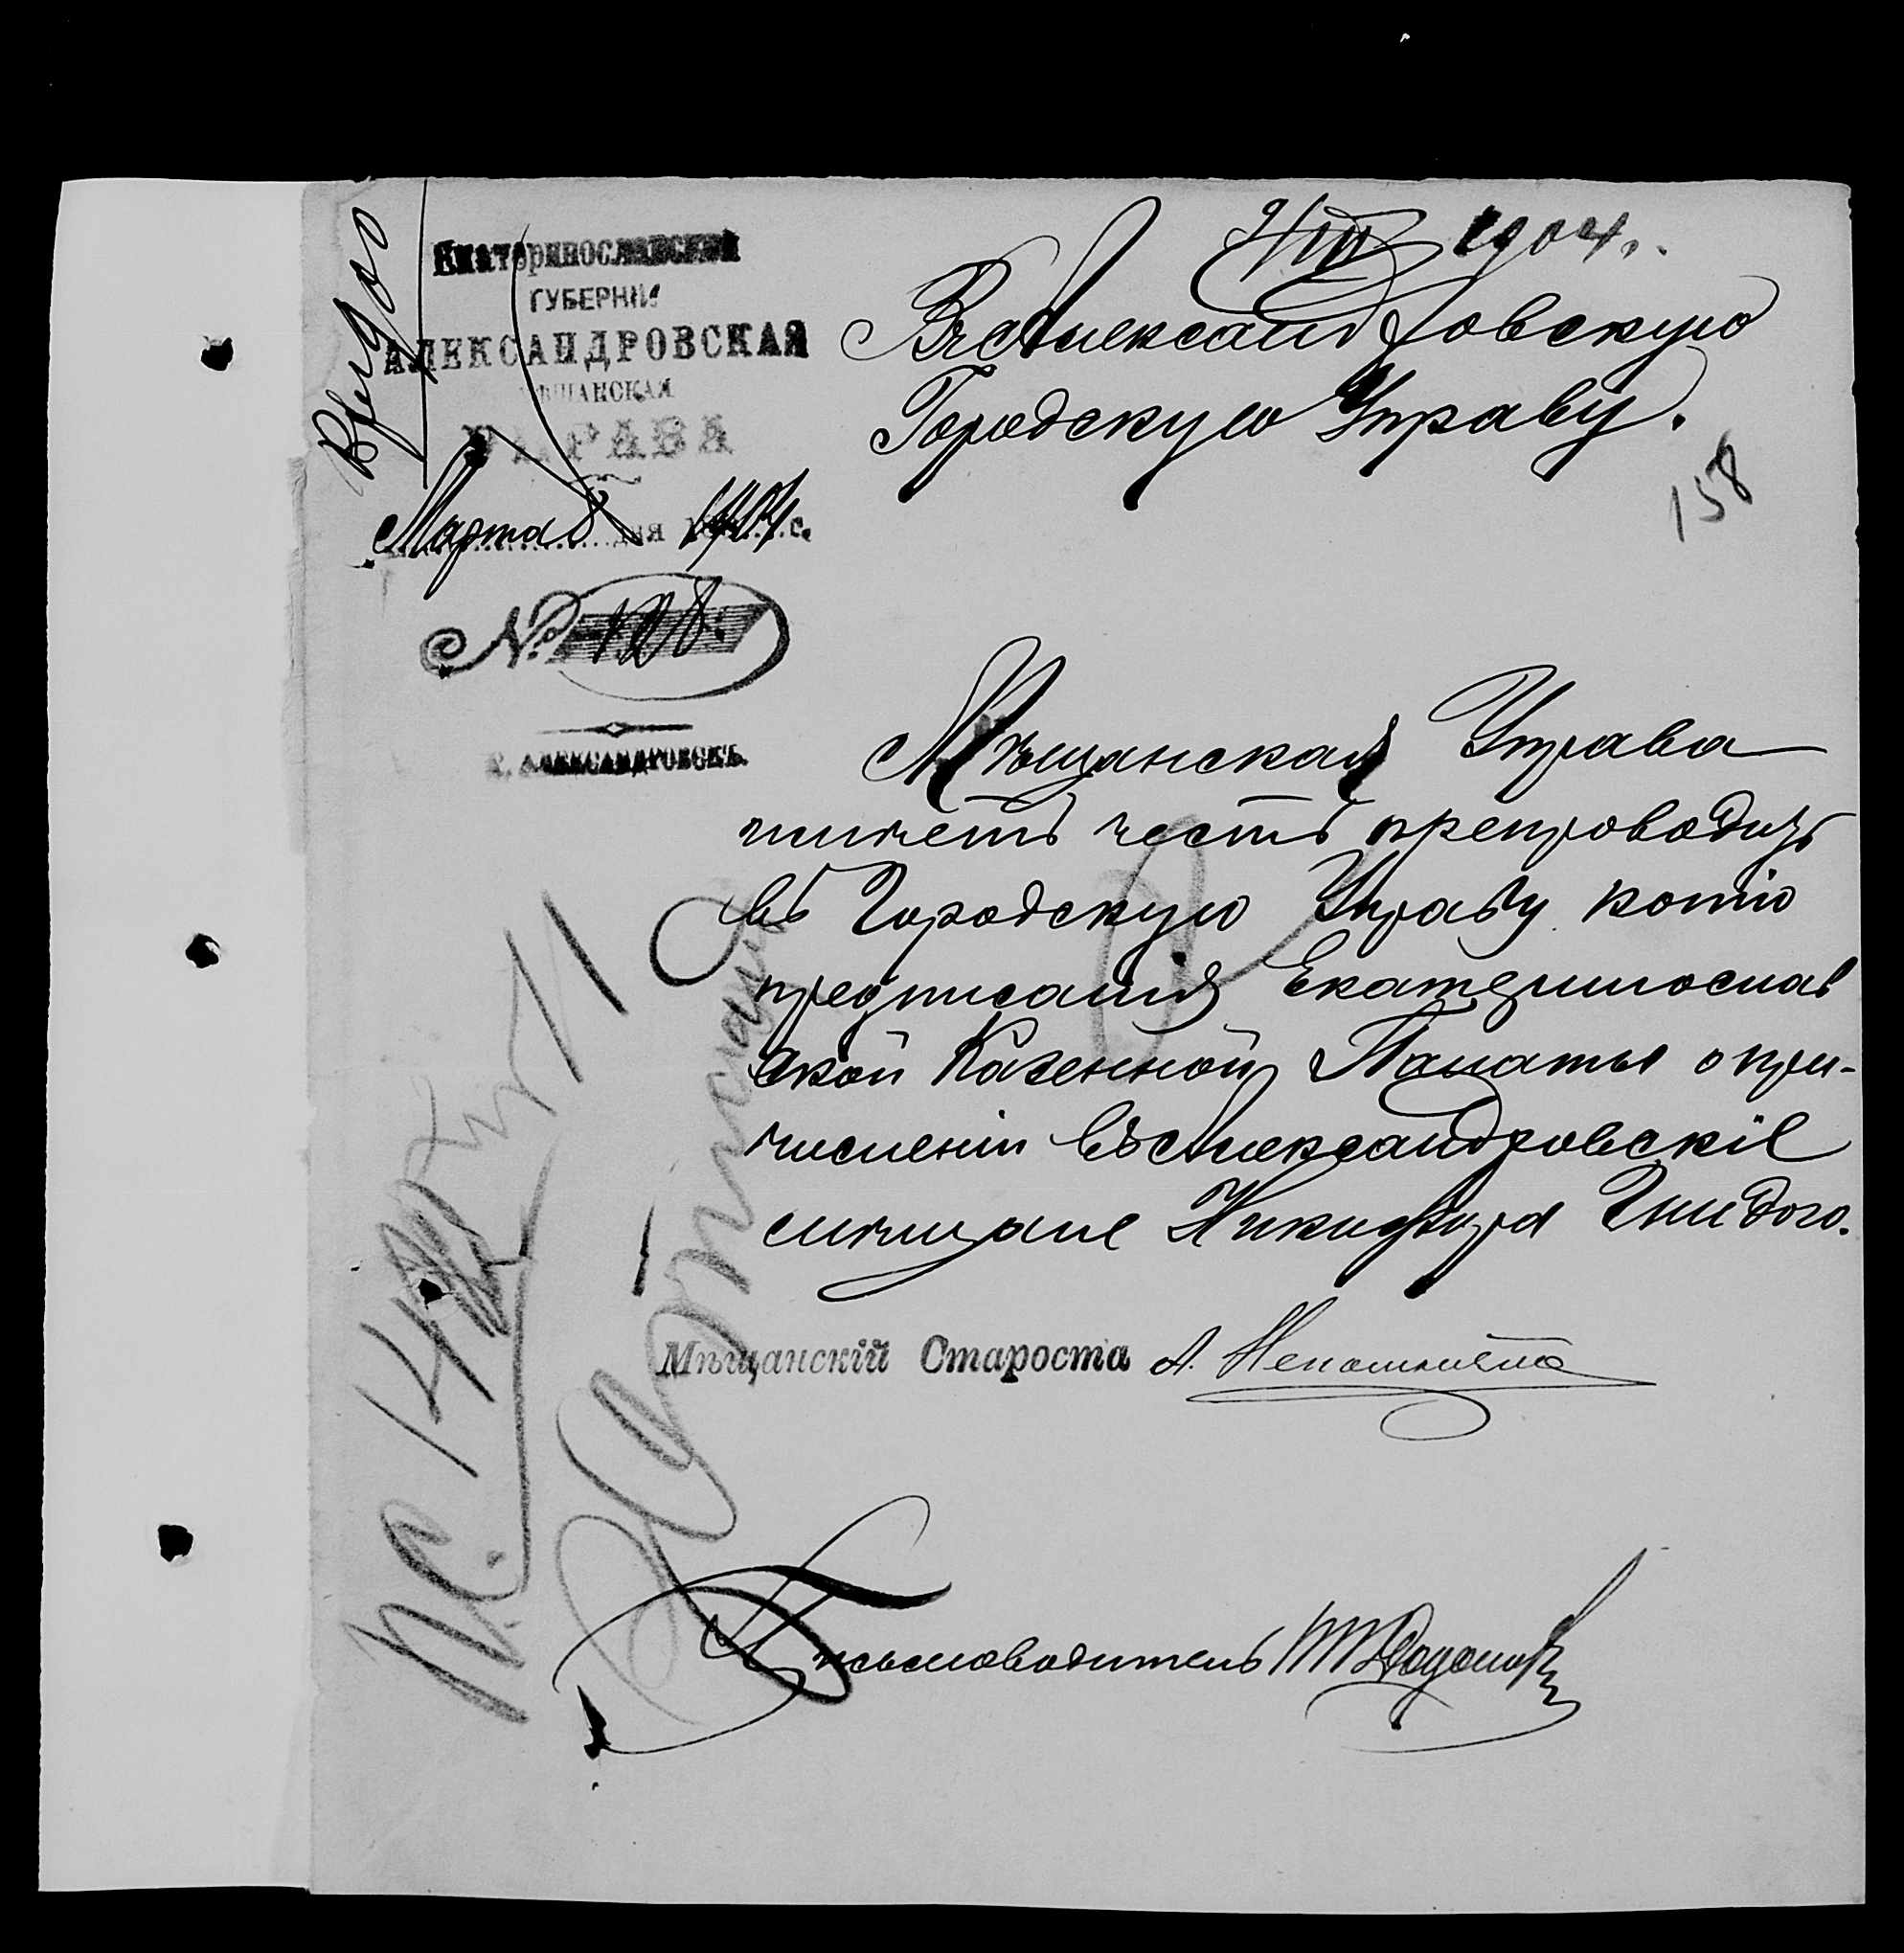 Екатеринославской
ГУБЕРНІИ
АЛЕКСАНДРОВСКАЯ
МѢЩАНСКАЯ
УПРАВА
Марта 8 дня 1904 г.
№ 128.
Г. АЛЕКСАНДРОВСКЪ.
9/III 1904.
Въ Александровскую
Городскую Управу.
158
Мѣщанская Управа
имѣетъ честь препроводить
въ Городскую Управу копію
предписанія Екатеринослав
ской Казенной Палаты о при-
численіи въ Александровскіе
мѣщане Никифора Гнидого.
Мѣщанскій Староста А.
Письмоводитель